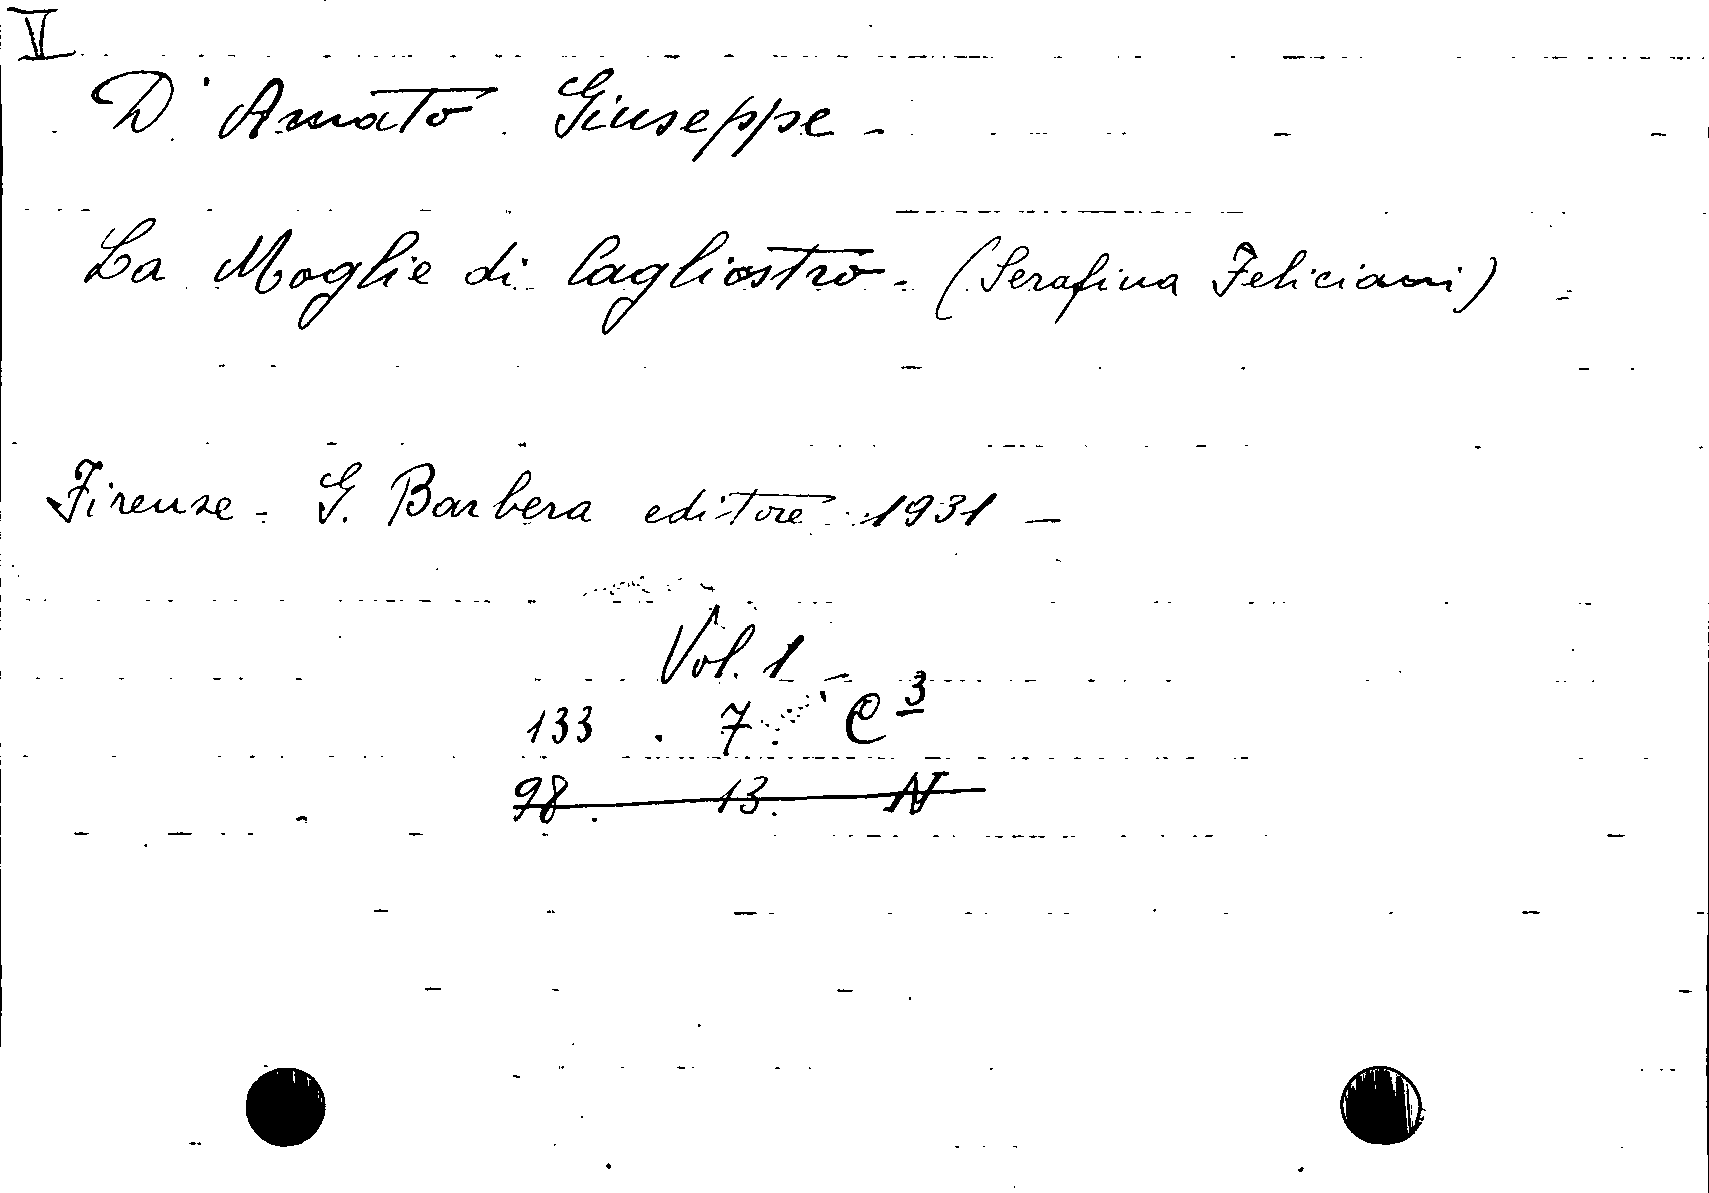 V
D'Amato Giuseppe -
La Moglie di Cagliostro - (Serafina Feliciani)
Firenze - G. Barbera editore 1931 -
Vol. 1 -
133 . 7. C 3
98. 13. N